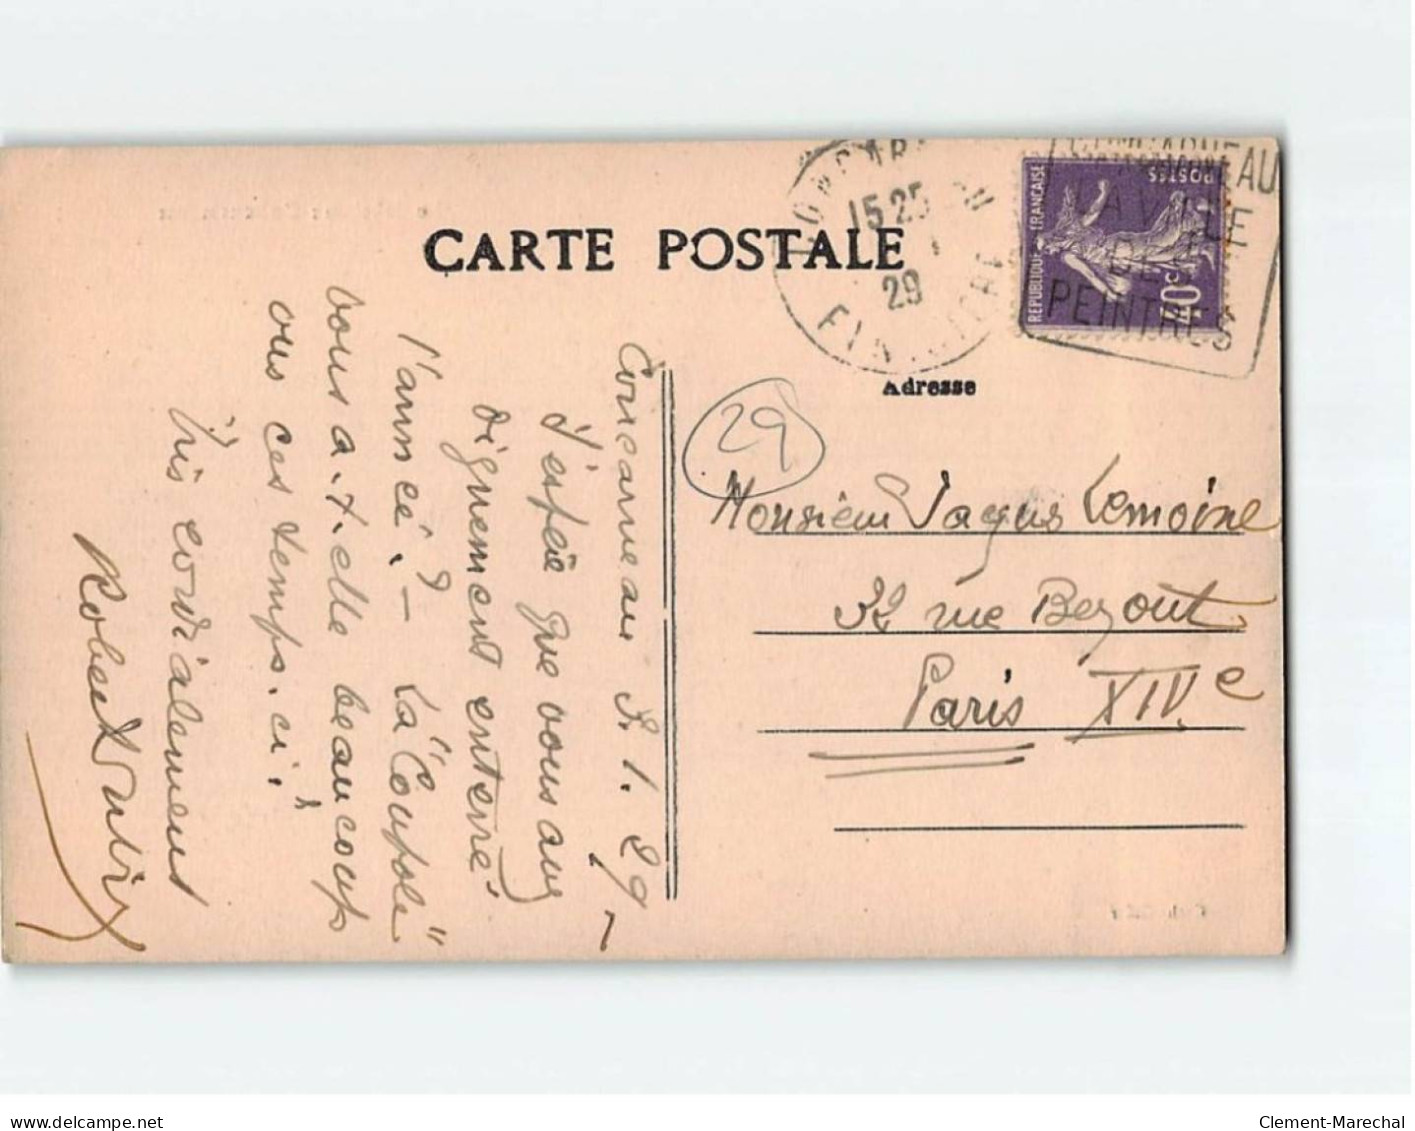 CARTE POSTALE
CONCARNEAU
15 25
29
FINISTERE
CONCARNEAU
LA VILLE
DES
PEINTRES
REPUBLIQUE FRANÇAISE
POSTES
40c
Adresse
29
Monsieur Jacques Lemoine
rue Bezout
Paris XIVe
Concarneau 3.1.29
J'espère que vous avez
dignement enterré
l'année ? – La "Coupole"
vous a-t-elle beaucoup
vus ces temps-ci ?
Très cordialement
Robert
Clement-Marechal